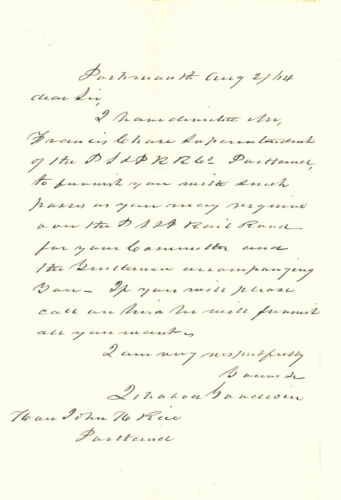 Portsmouth Aug 2/64
dear Sir,
I have directed Mr.
Francis Chase Superintendent
of the P S & P R R Co Portland,
to furnish you with such
passes as you may require
over the P S & P Rail Road
for your Committee and
the Gentlemen accompanying
you – If you will please
call on him he will furnish
all you want.
I am very respectfully
Yours &c
Ichabod Goodwin
Hon John H Rice
Portland